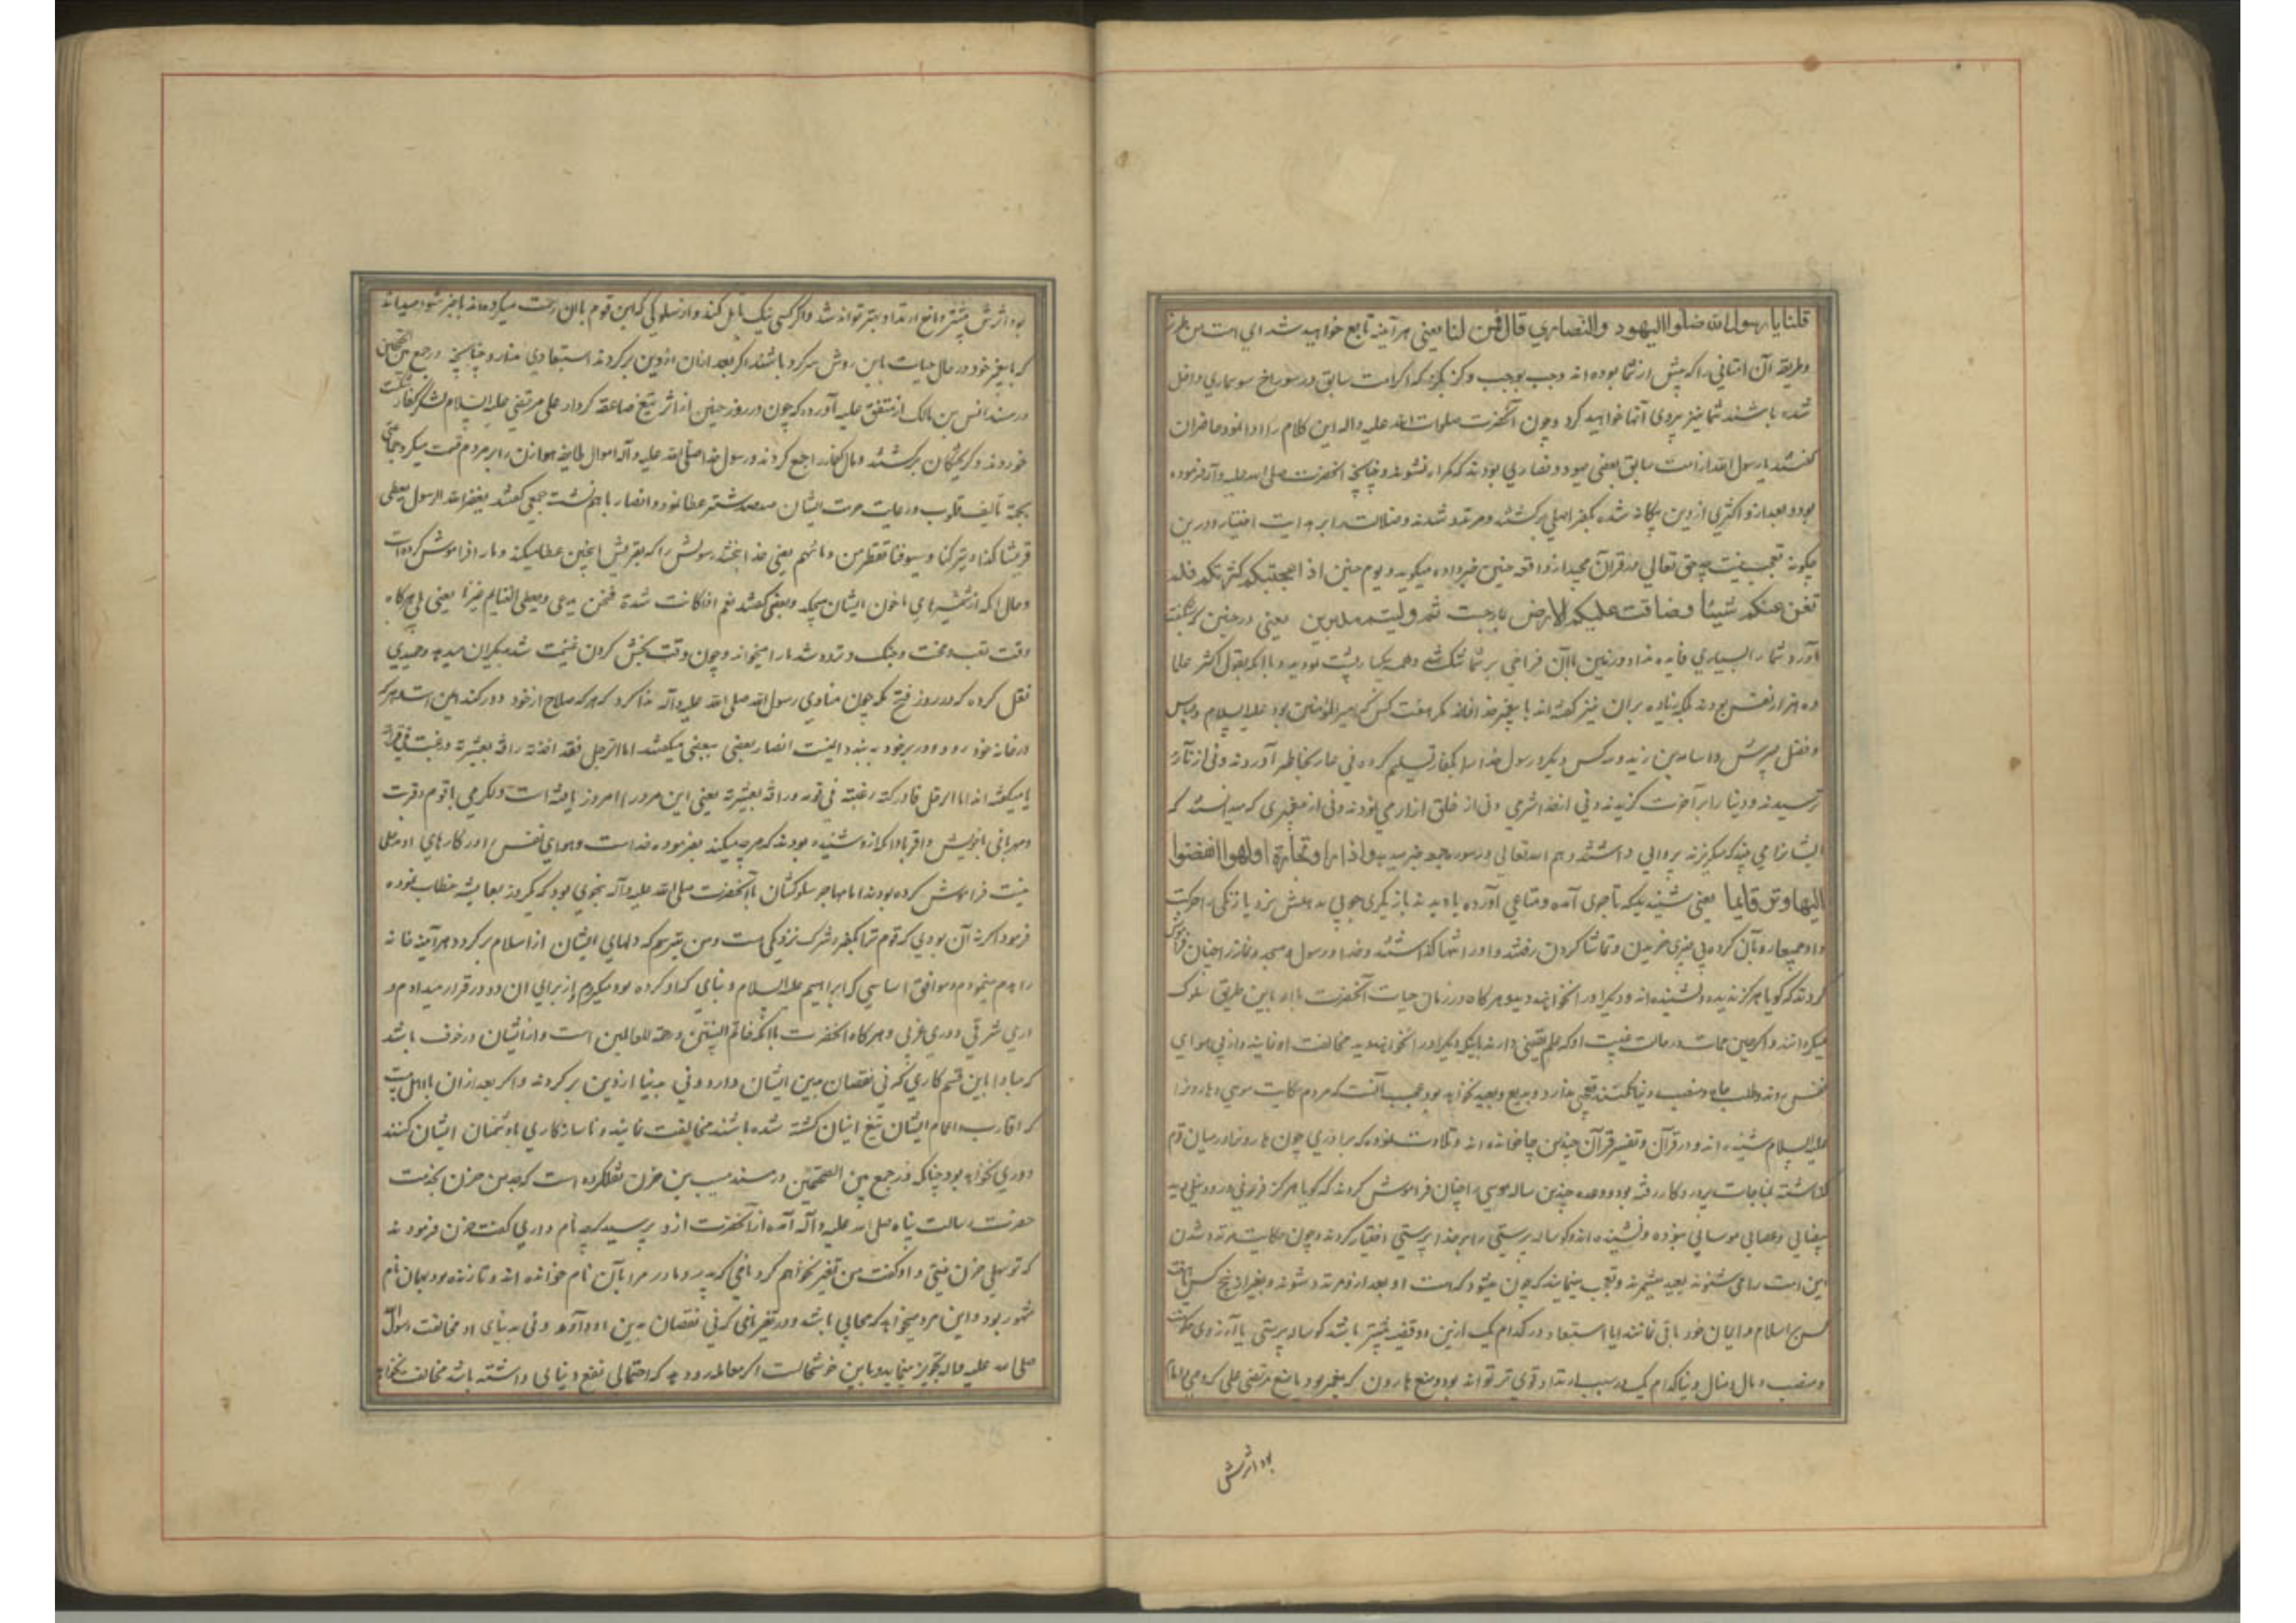 قلنا یا رسول الله ضلوا الیهود والنصاری قال فمن لنا یعنی هر آینه تابع خواهید شد ای امت من طریق
و طریقه آن امتانی را که پیش از شما بوده اند وجب بوجب و کز بکز که اگر امت سابق در سوراخ سوسماری داخل
شده باشند شما نیز پیروی آنها خواهید کرد و چون آنحضرت صلوات الله علیه واله این کلام را ادا نمود حاضران
گفتند یا رسول الله از امت سابق بعضی یهود و نصاری بودند که گمراه نشوند و چنانچه آنحضرت صلی الله علیه وآله فرموده
بود و بعد از و اکثری از دین بیگانه شده بکفر اصلی برگشتند و مرتد شدند و ضلالت را بر هدایت اختیار و درین
چگونه تعجب نیست چه حق تعالی در قرآن مجید از واقعه حنین خبر داده میگوید و یوم حنین اذ اعجبتکم کثرتکم فلم
تغن عنکم شیئا وضاقت علیکم الارض بما رحبت ثم ولیتم مدبرین یعنی در حنین که شگفت
آورد شما را بسیاری فایده نداد و زمین با آن فراخی بر شما تنگ شد و همه یکبار پشت نمودید و با آنکه بقول اکثر علما
ده هزار نفس بودند بلکه زیاده بر آن نیز گفته اند با پیغمبر خدا نماند مگر هفت کس که امیرالمؤمنین بود علیه السلام و عباس
و فضل پسرش و اسامه بن زید و کس دیگر و رسول خدا را بکفار تسلیم کرده نی عار بخاطر آوردند و نی از نار
ترسیدند و دنیا را بر آخرت گزیدند و نی از خدا شرمی و نی از خلق آزرمی نمودند و نی از پیغمبری که میدانستند که
ایشانرا می بیند که میگریزند پروایی داشتند و هم الله تعالی در سوره جمعه خبر میدهد واذا راوا تجارة اولهوا انفضوا
الیها وترکوک قایما یعنی شنیدند که تاجری آمده و متاعی آورده یا دیدند بازیگری چوبی بدهلش نزد یا زنگی را حرکت
کردند که گویا هرگز ندیده و نشنیده اند و دیگر او را نخواهند دید و هرگاه در زمان حیات آنحضرت با او باین طریق سلوک
میکرده اند
علیه السلام شنیده اند و در قرآن و تفسیر قرآن چندین جا خوانده اند و تلاوت نموده که برادری چون هارون را در میان قوم
گذاشته بمناجات پروردگار رفته بود و وعده چندین ساله موسی را چنان فراموش کردند که گویا هرگز فرعونی و رود نیلی و ید
بیضایی و عصایی موسایی نبوده و نشنیده اند و گوساله پرستی را بر خدا پرستی اختیار کردند و چون حکایت مرتد شدن
این امت را می شنوند بعید میشمرند و تعجب مینمایند که چون میشود که امت او بعد از و مرتد شوند و بغیر از پنج کس یا هفت
کس بر اسلام و ایمان خود باقی نمانند ایا استبعاد در کدام یک ازین دو قضیه بیشتر باشد گوساله پرستی یا آرزوی حکومت
و منصب و مال و منال دنیا کدام یک در سبب ارتداد قوی تر تواند بود و منع هارون که پیغمبر بود یا منع مرتضی علی که وصی امام
بود اثرش
بود اثرش بیشتر و مانع ارتداد بهتر تواند شد و اگر کسی نیک تأمل کند و از سلوکی که این قوم با آن رحمت میکرده اند با خبر شود میداند
که با پیغمبر خود در حال حیات باین روش سر کرده باشند اگر بعد از آن از دین برگردند استبعادی ندارد و چنانچه در جمع بین الصحیحین
در مسند انس بن مالک از متفق علیه آورده که چون در روز حنین از اثر تیغ صاعقه کردار علی مرتضی علیه السلام لشکر کفار شکست
خوردند و گریختگان برگشتند و مال کفار را جمع کردند و رسول خدا صلی الله علیه وآله اموال طایفه هوازن را بر مردم قسمت میکرد
بجهة تألیف قلوب و رعایت حرمت ایشان صد صد شتر عطا نمود و انصار با هم نشسته جمعی گفتند یغفر الله لرسول یعطی
قریشا کذا و یترکنا و سیوفنا تقطر من دمائهم یعنی خدا ببخشد رسولش را که بقریش اینچنین عطا میکند و ما را فراموش کرده است
و حال آنکه از شمشیرهای ما خون ایشان میچکد و بعضی گفتند نعم اذا کانت شدة فنحن ندعی ویعطی الغنایم غیرنا یعنی بلی هرگاه
وقت تعب و محنت و جنگ و تردد شد ما را میخواند و چون وقت بخش کردن غنیمت شد بدیگران میدهد و حمیدی
نقل کرده که در روز فتح مکه چون منادی رسول الله صلی الله علیه وآله ندا کرد که هر که سلاح از خود دور کند امن است و هر که
در خانه خود رود و در بر خود ببندد ایمنست انصار بعضی ببعضی میگفتند اما الرجل فقد اخذته رأفة بعشیرته ورغبت فی قرابته
یا میگفته اند اما الرجل فادرکته رغبته فی قومه ورأفة بعشیرته یعنی این مرد را امروز یافته است
و مهربانی بخویش و اقربا با آنکه از و شنیده بودند که هر چه میکند بفرموده خداست و هوای نفس را در کارهای او دخلی
نیست فراموش کرده بودند اما مهاجر سلوکشان با آنحضرت صلی الله علیه وآله بنحوی بود که یکروز بعایشه خطاب نموده
فرمود اگر نه آن بودی که قوم ترا بکفر و شرک نزدیکی است و من میترسم که دلهای ایشان از اسلام برگردد هر آینه خانه
را هدم مینمودم و موافق اساسی که ابراهیم علیه السلام و بنای که او کرده بود میکردم و از برای آن دو در قرار میدادم
دری شرقی و دری غربی و هرگاه آنحضرت با آنکه خاتم النبیین و رحمة للعالمین است و از ایشان در خوف باشد
که مبادا باین قسم کاری که نی نقصان بدین ایشان دارد و نی بدنیا از دین برگردند و اگر بعد از آن با اهل بیت
که اقارب و اعمام ایشان بتیغ اینان کشته شده باشند مخالفت نمایند و ناسازکاری با دشمنان ایشان کنند
دوری نخواهد بود چنانکه در جمع بین الصحیحین در مسند مسیب بن حزن نقل کرده است که جد من حزن بخدمت
حضرت رسالت پناه صلی الله علیه وآله آمده آنحضرت از و پرسید که چه نام داری گفت حزن فرمودند
که تو سهلی حزن نیستی و او گفت من تغییر نخواهم کرد نامی که پدر و مادر مرا بآن نام خوانده اند و تا زنده بود بهمان نام
مشهور بود و این مرد میخواهد که صحابی باشد و در تغییر نامی که نی نقصان بدین او دارد و نی بدنیای او مخالفت رسول
صلی الله علیه واله تجویز مینماید و باین خوشحالست اگر معامله رو دهد که احتمالی نفع دنیائی داشته باشد مخالفت نخواهد